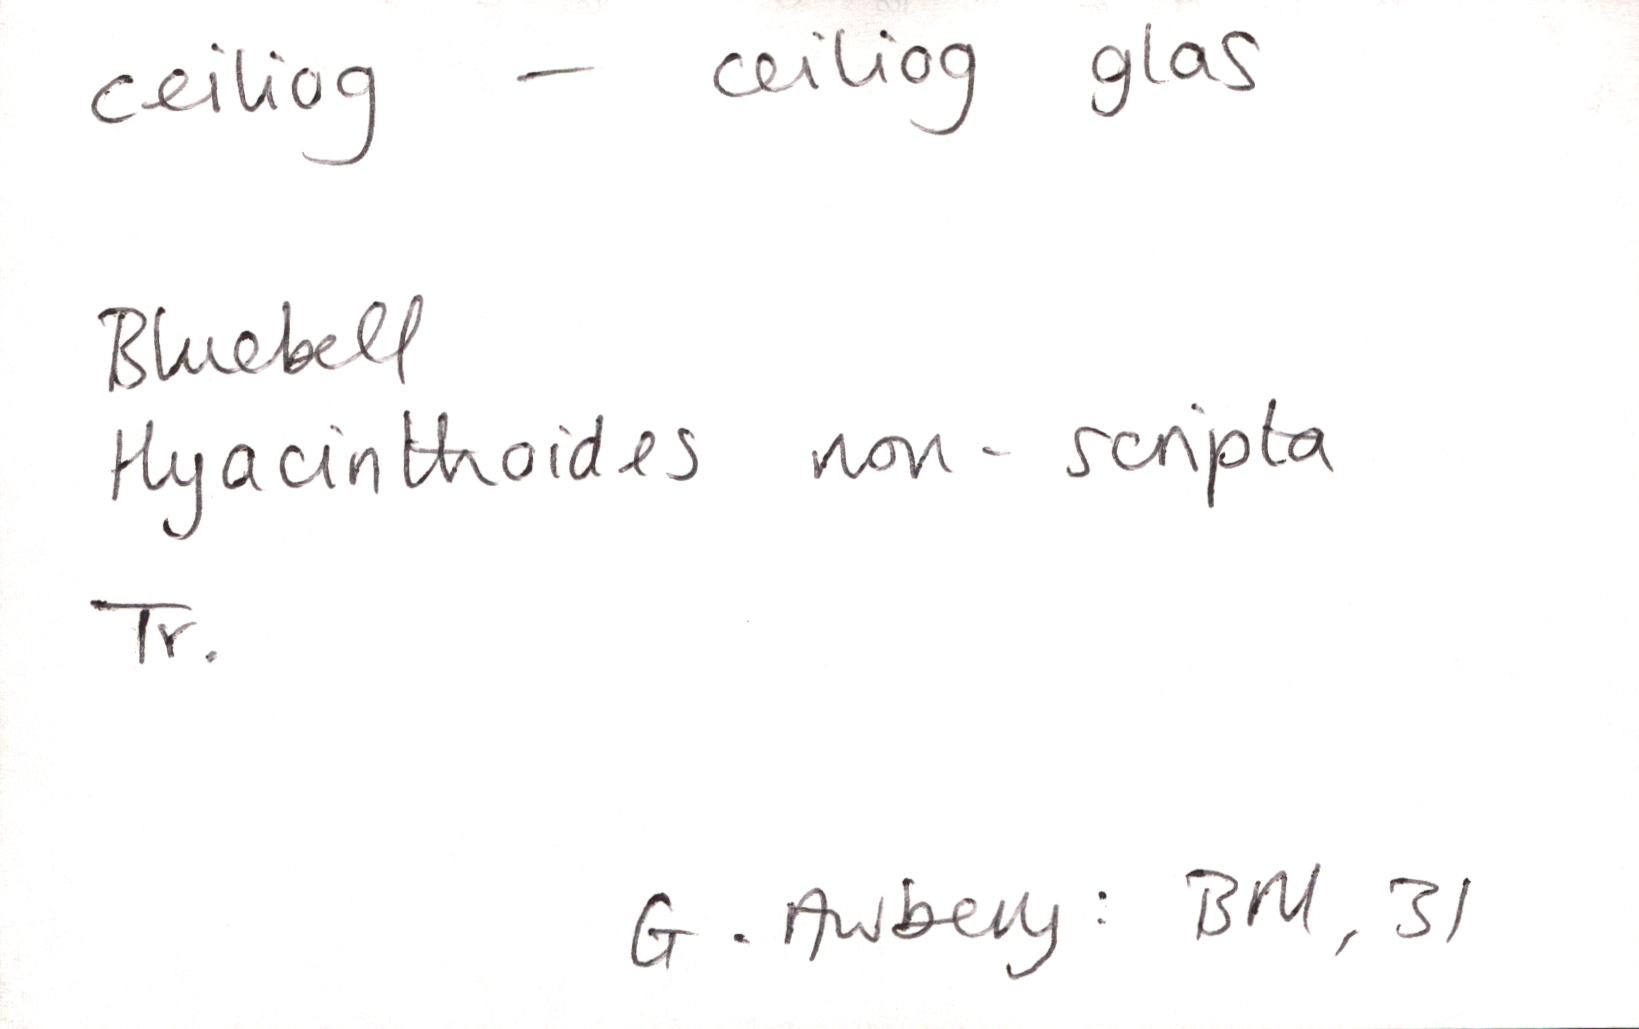 ceiliog - ceiliog glas
Bluebell
Hyacinthoides non-scripta
Tr.
G. Awbery: BM, 31